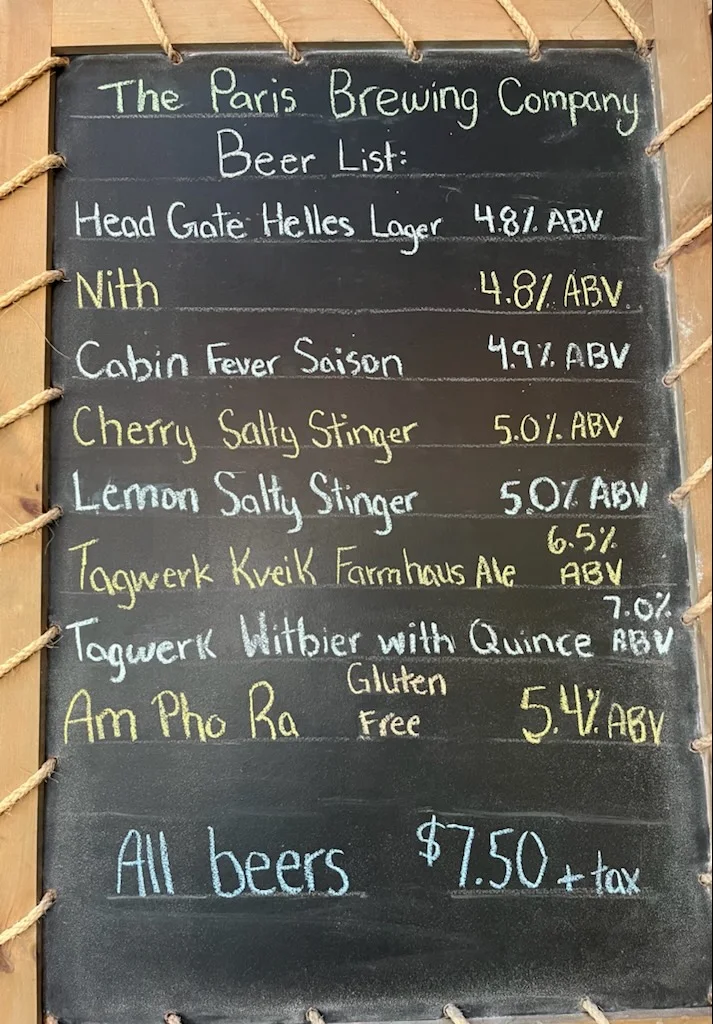 The Paris Brewing Company
Beer List:
Head Gate Helles Lager 4.8% ABV
Nith 4.8% ABV
Cabin Fever Saison 4.9% ABV
Cherry Salty Stinger 5.0% ABV
Lemon Salty Stinger 5.0% ABV
Tagwerk Kveik Farmhaus Ale 6.5% ABV
Tagwerk Witbier with Quince 7.0% ABV
Am Pho Ra Gluten Free 5.4% ABV
All beers $7.50 + tax